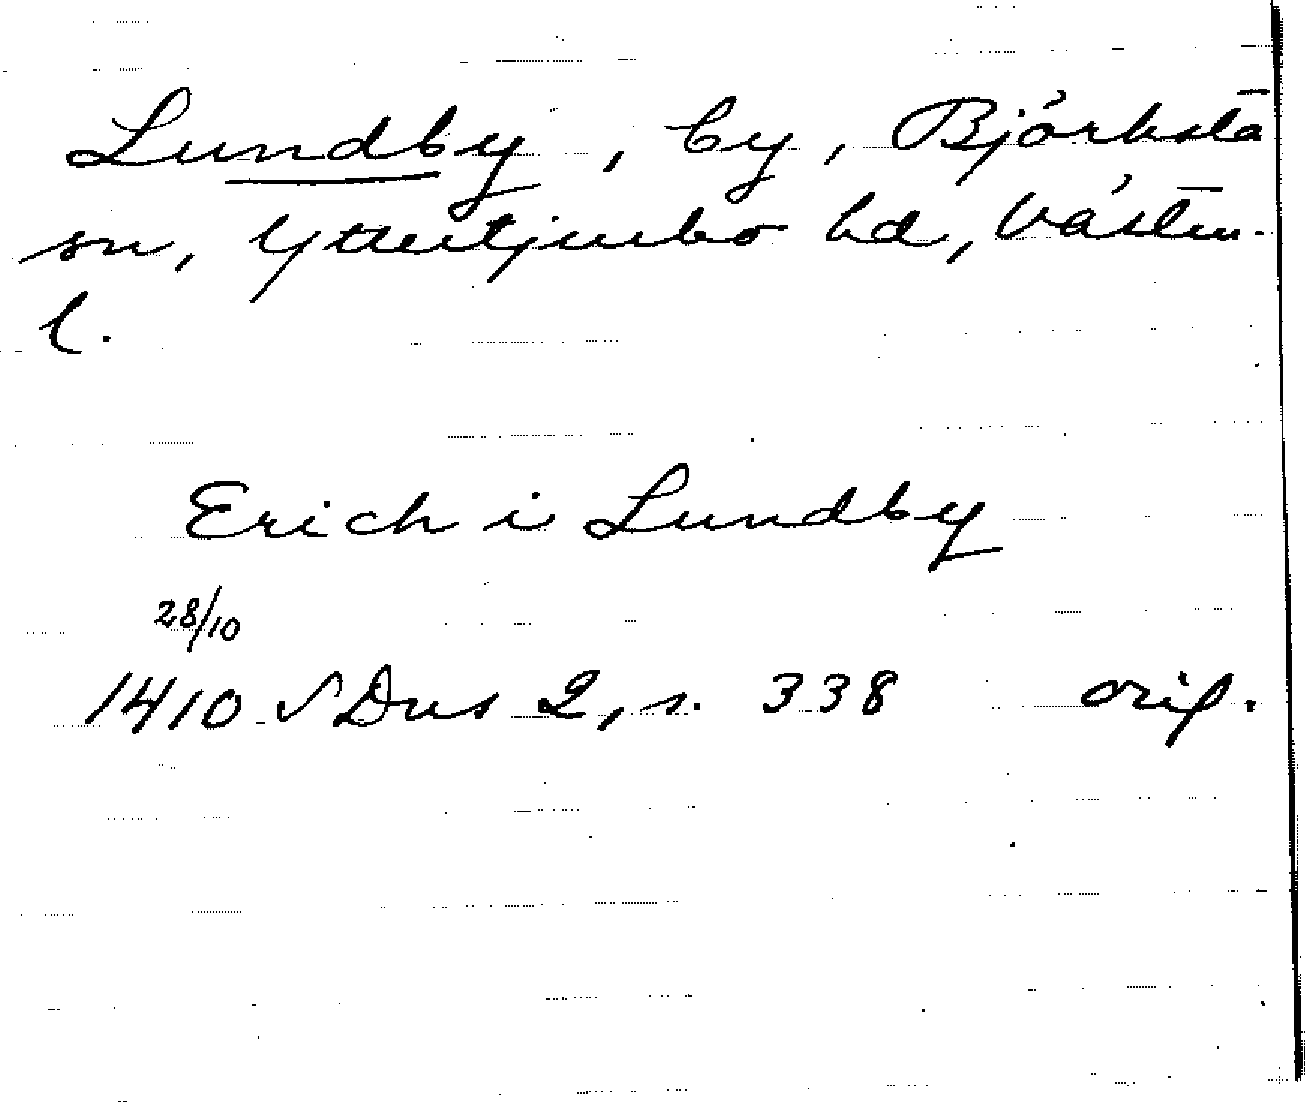 Lundby, by, Björksta
sn, Yttertjurbo hd, Västm.
l.
Erich i Lundby
28/10
1410 SDns 2, s. 338 orig.